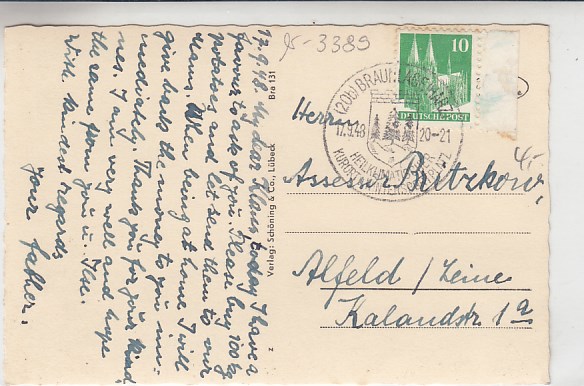 17.9.48. My dear Klaus, today I have a
favour to ask of you. Please buy 100 kg
Potatoes and let send them to our
Hans. When being at home I will
give back the money to you im-
mediately. Thank you for your kind-
nes. I am very well and hope
the same from you u. Ilse.
With kindest regards
Your father.
Bra 131
Verlag: Schöning & Co., Lübeck
z
95-3389
10
DEUTSCHE POST
(20b) BRAUNLAGE
17.9.48 20-21
HEILKLIMATISCHER
KURORT
Herrn
Assessor Bretzkow,
4,-
Alfeld / Leine
Kalandstr 1a